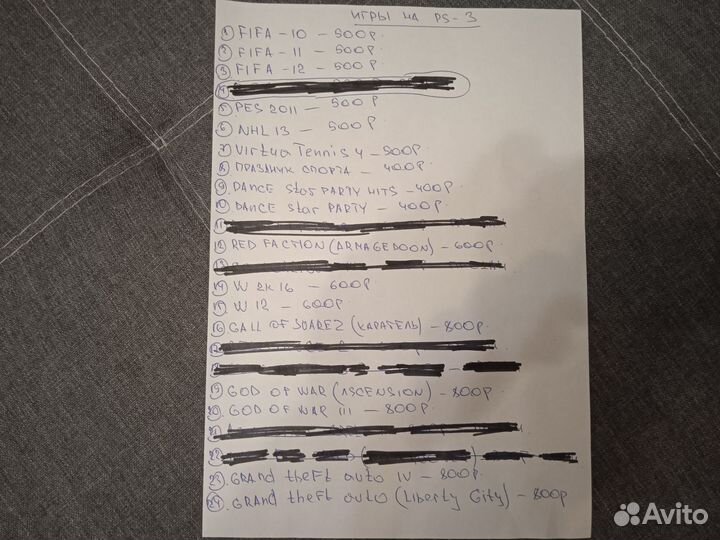 ИГРЫ НА PS-3
1 FIFA-10 – 500р.
2 FIFA-11 – 500р.
3 FIFA-12 – 500р.
4
5. PES 2011 – 500р
6 NHL 13 – 500р.
7 Virtua Tennis 4 – 500р.
8 ПРАЗДНИК СПОРТА – 400р.
9 DANCE Star PARTY HITS – 400р.
10 DANCE Star PARTY – 400р.
11
12 RED FACTION (ARMAGEDOON) – 600р.
13
14 W 2K16 – 600р.
15. W 12 – 600р.
16 CALL OF JUAREZ (КАРАТЕЛЬ) – 800р.
19 GOD OF WAR (ASCENSION) – 800р.
20. GOD OF WAR III – 800р.
21
22
23. GRAND theft auto IV – 800р.
24. GRAND theft auto (Liberty City) – 800р
Avito